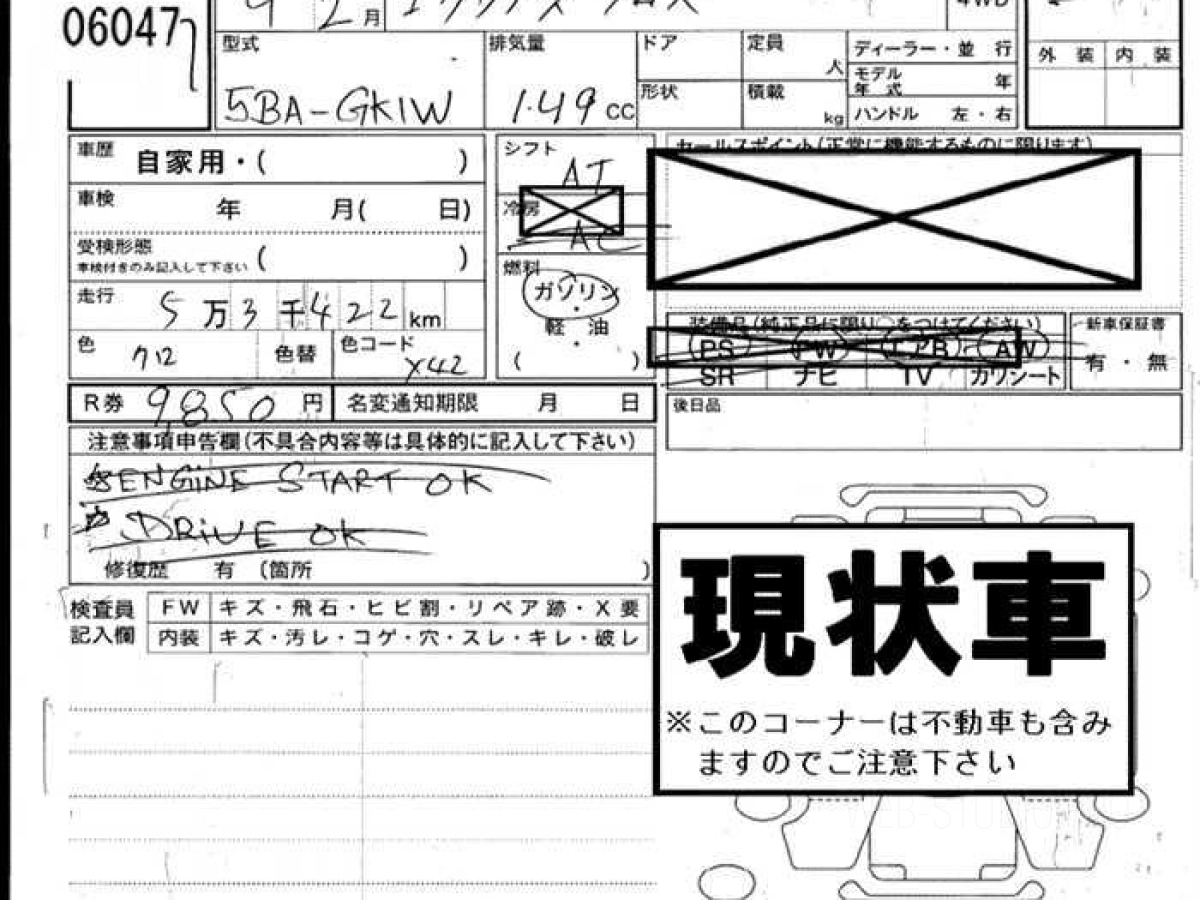 06047
月
4WD
型式
5BA-GK1W
排気量
1.49 cc
ドア
定員
人
形状
積載
kg
ディーラー・並 行
モデル
年 式
年
ハンドル 左・右
外 装
内 装
車歴 自家用・( )
車検 年 月( 日)
受検形態
車検付きのみ記入して下さい ( )
走行 5万3千422 km
色 クロ
色替
色コード X42
シフト
AT
冷房
AC
燃料
ガソリン
・
軽 油
・
( )
セールスポイント(正常に機能するものに限ります)
装備品(純正品に限り○をつけてください)
PS PW エアB AW
SR ナビ TV カワシート
新車保証書
有 ・ 無
R券 9,850 円
名変通知期限 月 日
後日品
注意事項申告欄(不具合内容等は具体的に記入して下さい)
☆ENGINE START OK
☆DRIVE OK
修復歴 有 (箇所 )
検査員
記入欄
FW キズ・飛石・ヒビ割・リペア跡・X要
内装 キズ・汚レ・コゲ・穴・スレ・キレ・破レ
現状車
※このコーナーは不動車も含み
ますのでご注意下さい